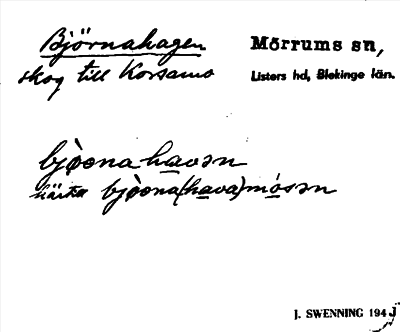 Björnahagen
skog till Korsamo
Mörrums sn,
Listers hd, Blekinge län.
bjòona havən
bjòona(hava)mósən
J. SWENNING 194